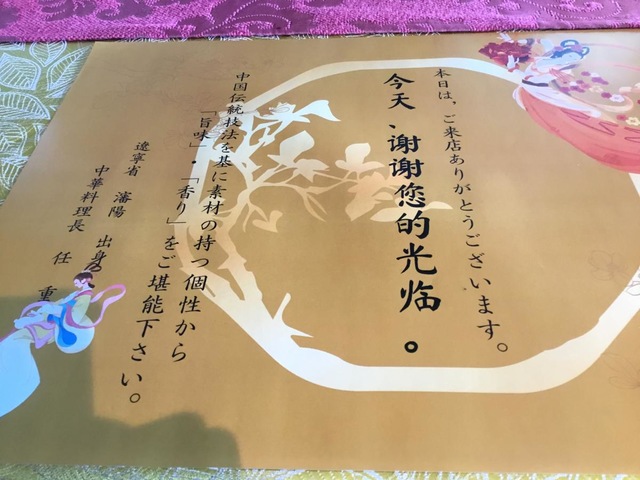 本日は、ご来店ありがとうございます。
今天、谢谢您的光临。
中国伝統技法を基に素材の持つ個性から
「旨味」・「香り」をご堪能下さい。
遼寧省 瀋陽 出身
中華料理長 任 重